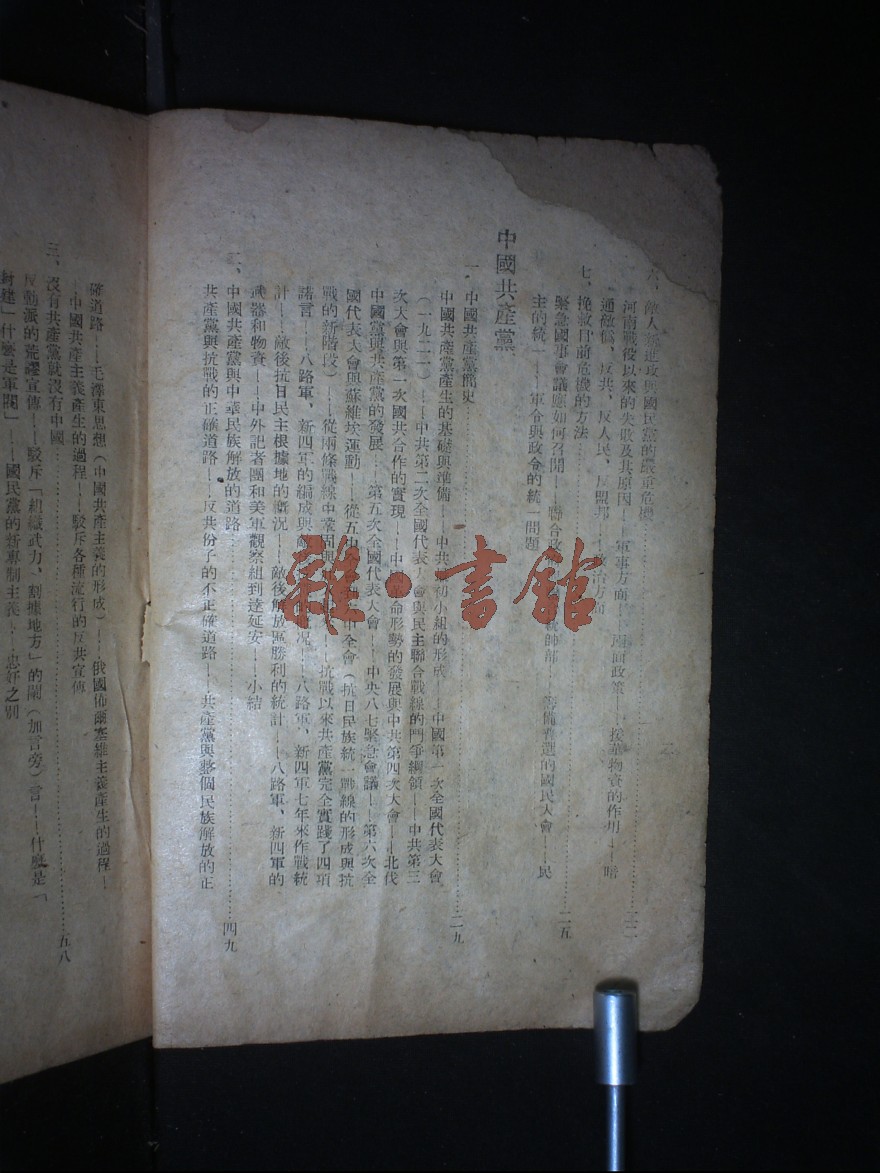 六、敵人新進攻與國民黨的嚴重危機……二二
河南戰役以來的失敗及其原因——軍事方面——對面政策——援華物資的作用——暗
通敵僞、反共、反人民、反盟邦——政治方面
七、挽救目前危機的方法……二五
緊急國事會議應如何召開——聯合政 帥部——籌備普選的國民大會——民
主的統一——軍令與政令的統一問題
中國共產黨
一、中國共產黨簡史……二九
中國共產黨產生的基礎與準備——中共 初小組的形成——中國第一次全國代表大會
(一九二一)——中共第二次全國代表大會與民主聯合戰線的鬥爭綱領——中共第三
次大會與第一次國共合作的實現——中國革命形勢的發展與中共第四次大會——北伐
中國黨與共產黨的發展——第五次全國代表大會——中央八七緊急會議——第六次全
國代表大會與蘇維埃運動——從五中全 中全會(抗日民族統一戰線的形成與抗
戰的新階段)——從兩條戰線中鞏固與 ——抗戰以來共產黨完全實踐了四項
諾言——八路軍、新四軍的編成與敵 況——八路軍、新四軍七年來作戰統
計——敵後抗日民主根據地的概況——敵後解放區勝利的統計——八路軍、新四軍的
武器和物資——中外記者團和美軍觀察組到達延安——小結
二、中國共產黨與中華民族解放的道路……四九
共產黨與抗戰的正確道路——反共份子的不正確道路——共產黨與整個民族解放的正
確道路——毛澤東思想(中國共產主義的形成)——俄國佈爾塞維主義產生的過程—
—中國共產主義產生的過程——駁斥各種流行的反共宣傳
三、沒有共產黨就沒有中國……五八
反動派的荒謬宣傳——駁斥「組織武力、割據地方」的闌(加言旁)言——什麼是「
封建」什麼是軍閥」——國民黨的新專制主義——忠奸之別